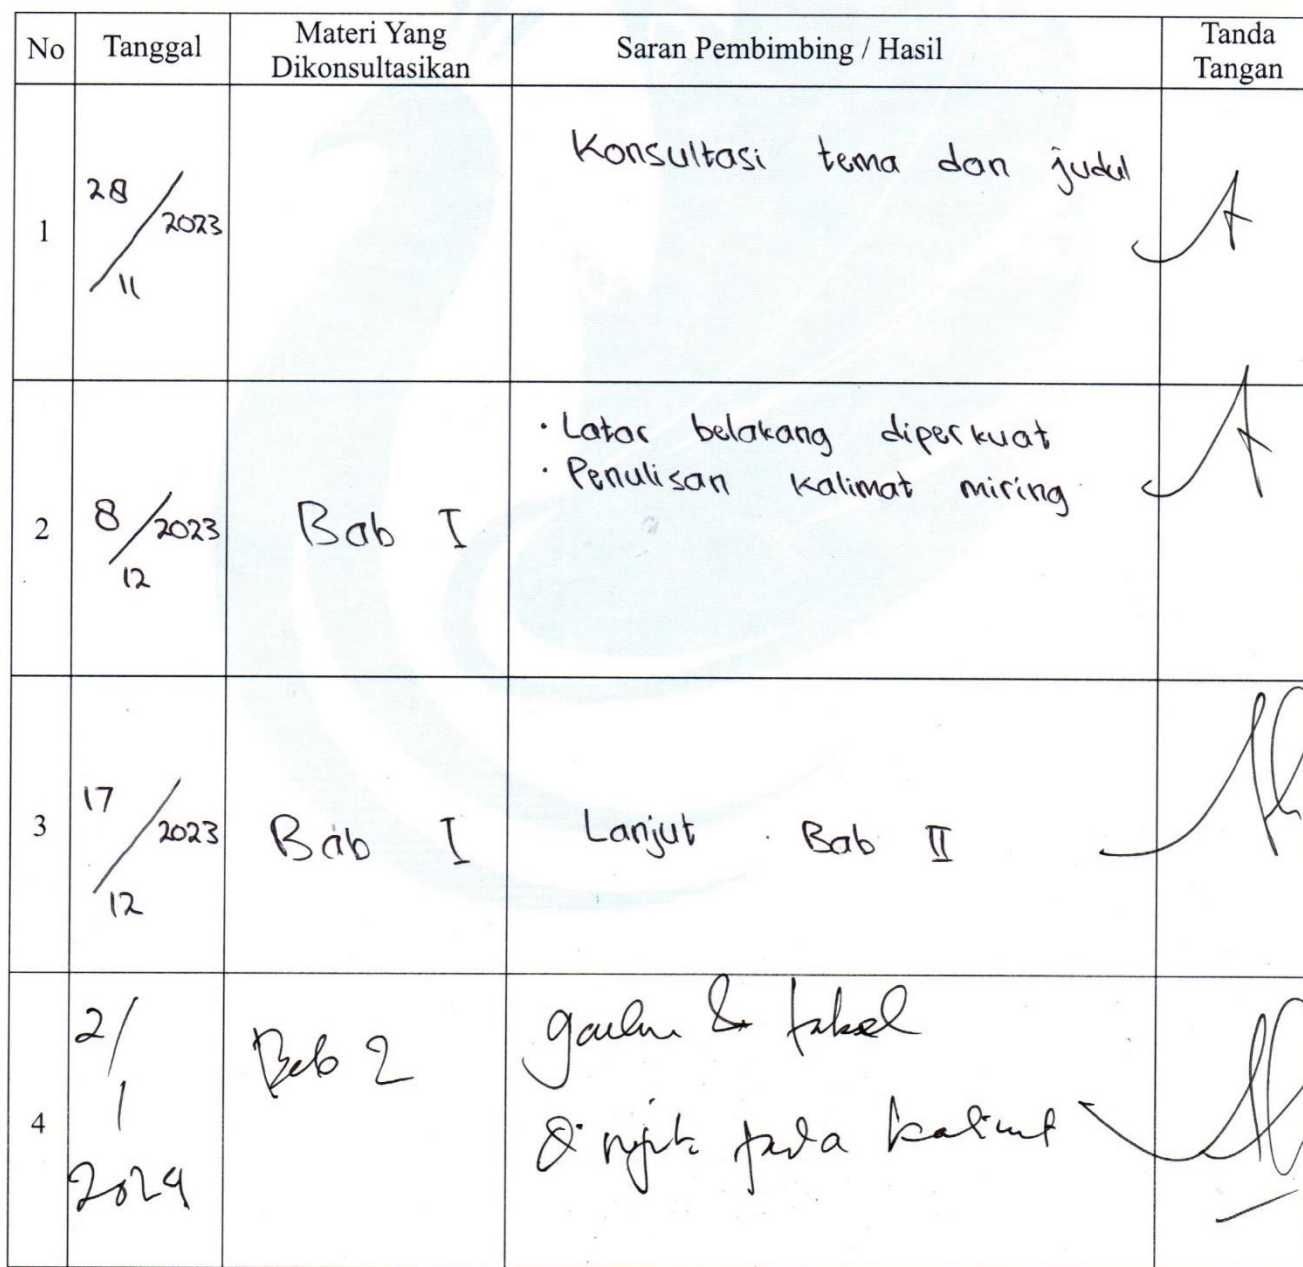 No Tanggal Materi Yang Dikonsultasikan Saran Pembimbing / Hasil Tanda Tangan
1 28/11 2023 Konsultasi tema dan judul
2 8/12 2023 Bab I · Latar belakang diperkuat
· Penulisan kalimat miring
3 17/12 2023 Bab I Lanjut Bab II
4 2/1 2024 Bab 2 & tabel
pada kalimat